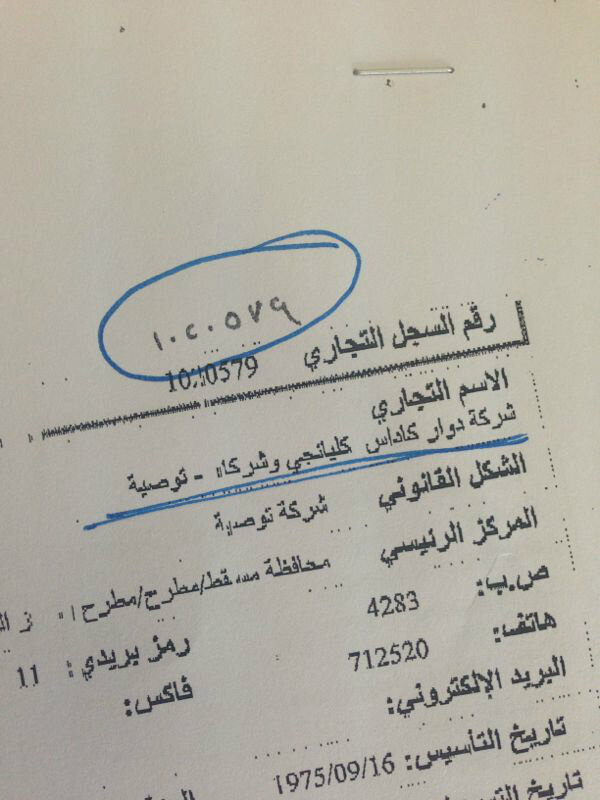 ١٠٢٠٥٧٩
رقم السجل التجاري
الاسم التجاري
شركة دوار كاداس كليانجي وشركاه - توصية
الشكل القانوني شركة توصية
المركز الرئيسي محافظة مسقط/مطرح/مطرح
ص.ب: 4283 رمز بريدي: 11
هاتف: 712520 فاكس:
البريد الإلكتروني:
تاريخ التأسيس: 1975/09/16
تاريخ